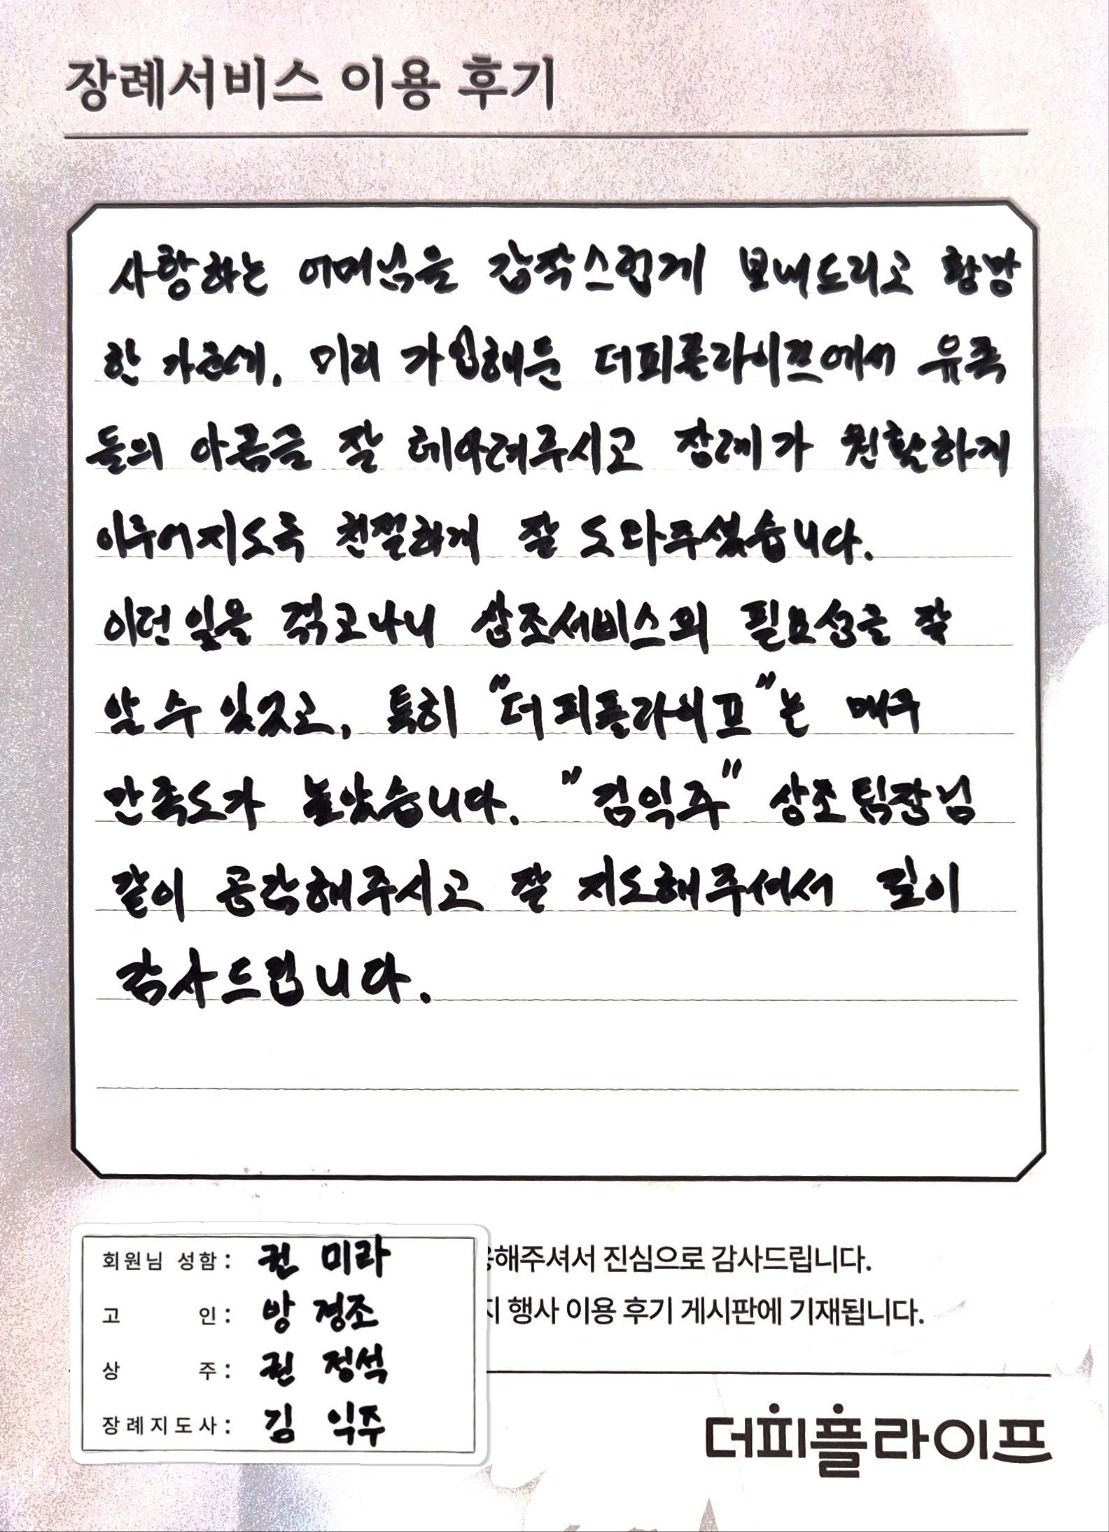 장례서비스 이용 후기
사랑하는 어머님을 갑작스럽게 보내드리고 황망
한 가운데, 미리 가입해둔 더피플라이프에서 유족
들의 아픔을 잘 헤아려주시고 장례가 원활하게
이루어지도록 친절하게 잘 도와주셨습니다.
이런일을 겪고나니 상조서비스의 필요성을 잘
알 수 있었고, 특히 "더피플라이프"는 매우
만족도가 높았습니다. "김익주" 상조팀장님
같이 공감해주시고 잘 지도해주셔서 깊이
감사드립니다.
회원님 성함: 권 미라
고 인:
상 주: 권 정석
장례지도사: 김 익주
용해주셔서 진심으로 감사드립니다.
지 행사 이용 후기 게시판에 기재됩니다.
더피플라이프